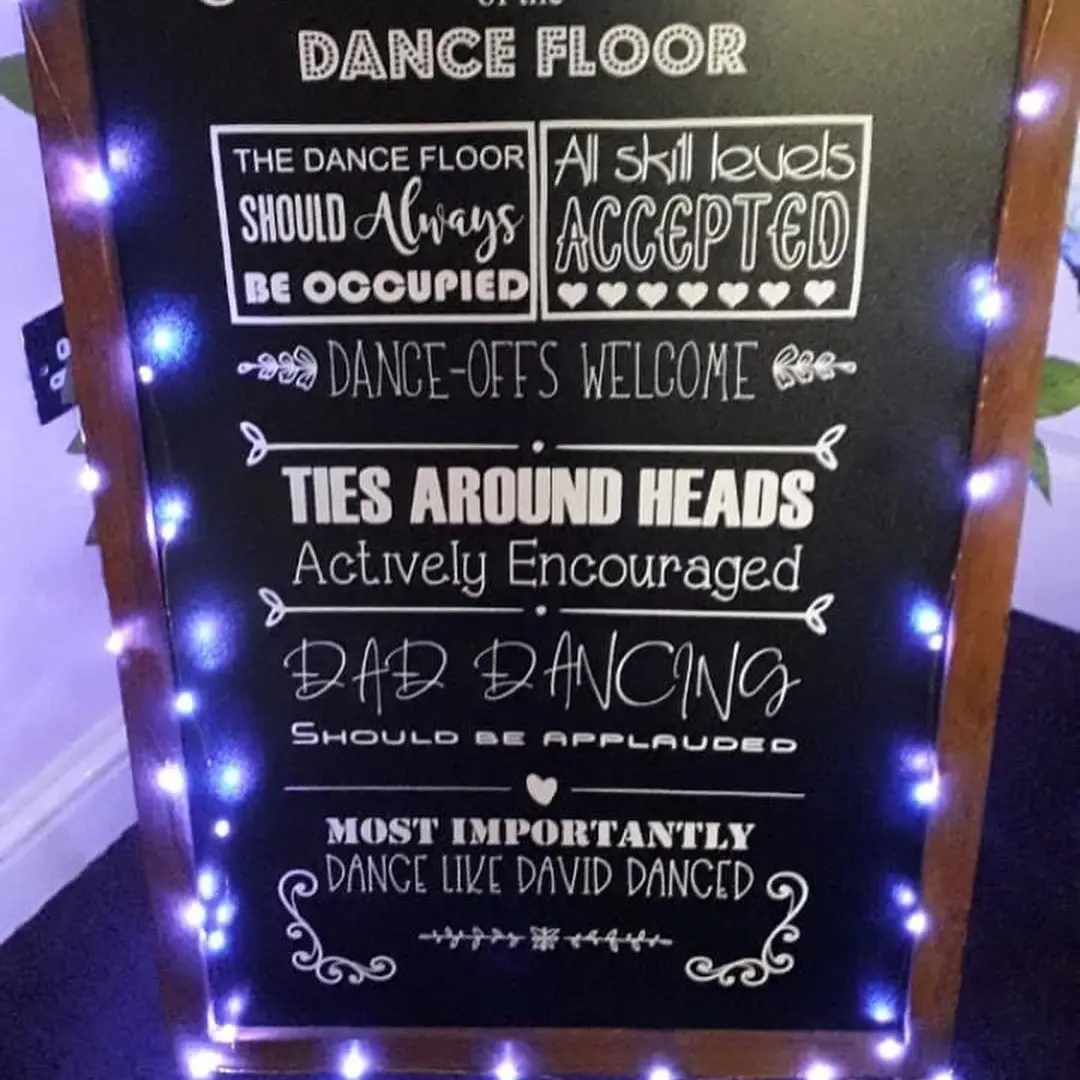 of the
DANCE FLOOR
THE DANCE FLOOR
SHOULD Always
BE OCCUPIED
All skill levels
ACCEPTED
DANCE-OFFS WELCOME
TIES AROUND HEADS
Actively Encouraged
DAD DANCING
SHOULD BE APPLAUDED
MOST IMPORTANTLY
DANCE LIKE DAVID DANCED